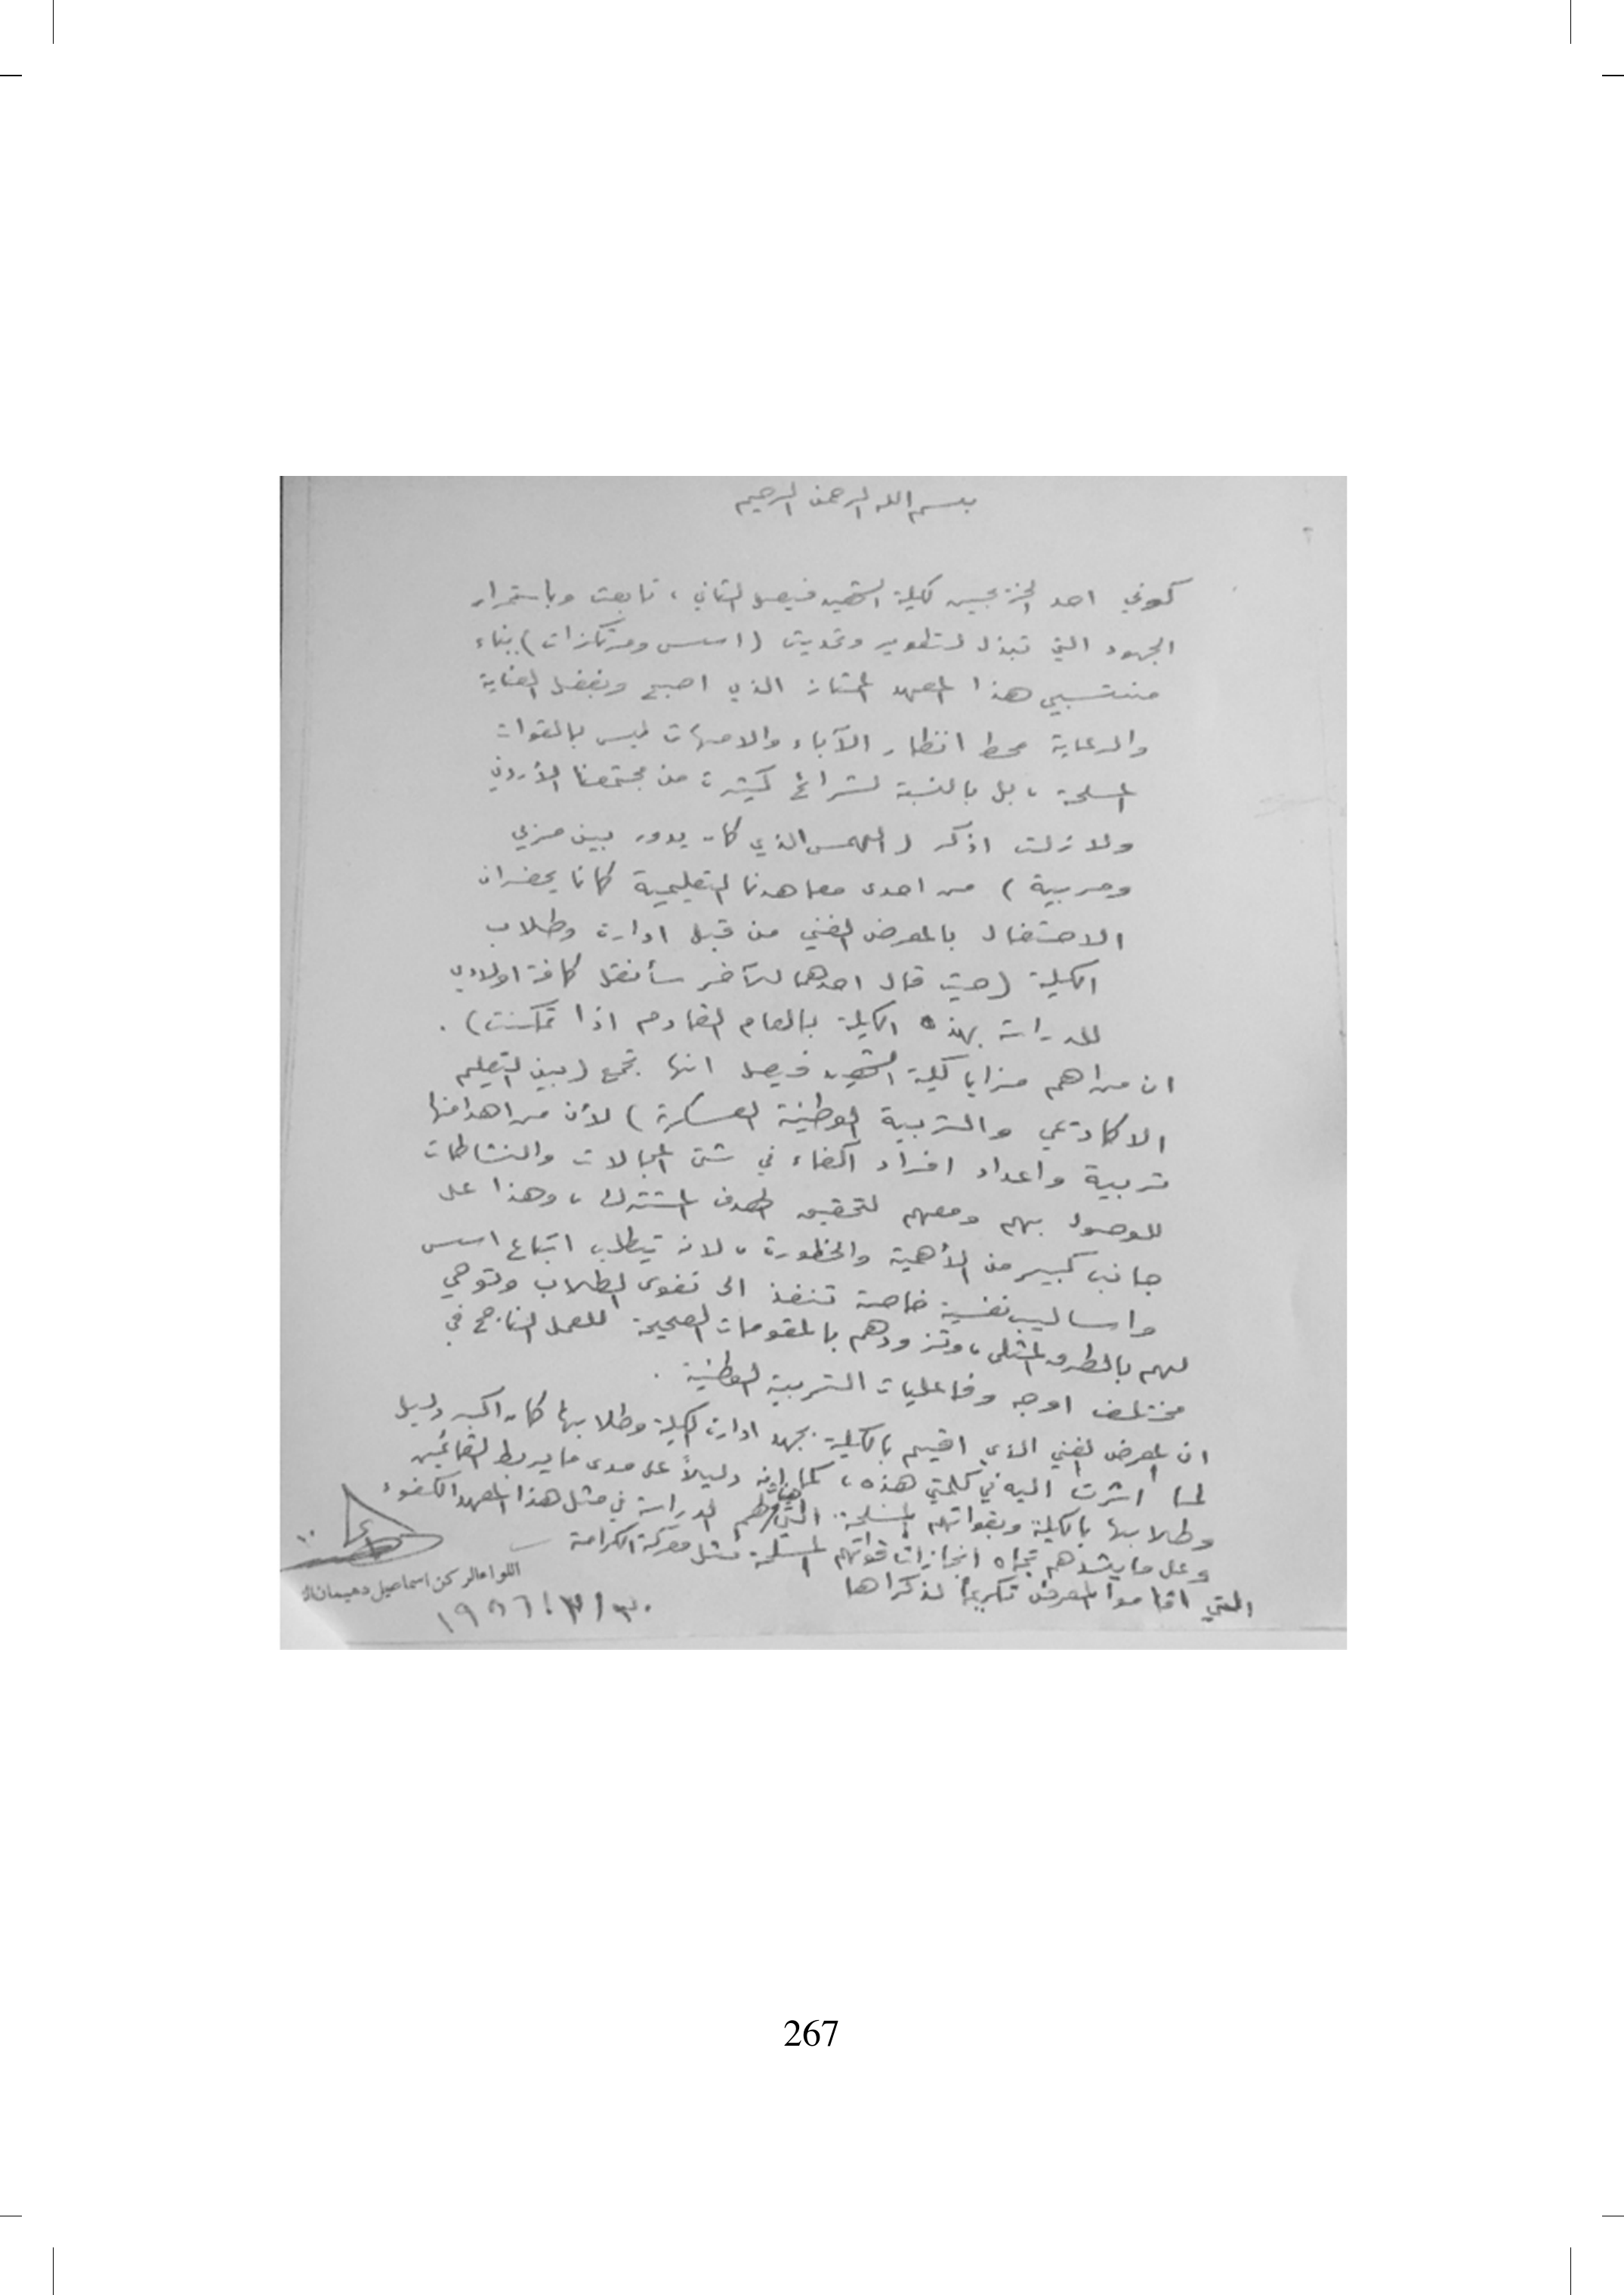 بسم الله الرحمن الرحيم
كوني احد الخريجين لكلية الشهيد فيصل الثاني ، تابعت وباستمرار
الجهود التي تبذل لتطوير وتحديث (اسس ومرتكزات) بناء
منتسبي هذا المعهد الممتاز الذي اصبح وبفضل العناية
والرعاية محط انظار الآباء والامهات ليس بالقوات
المسلحة ، بل بالنسبة لشرائح كثيرة من مجتمعنا الأردني
ولا زلت اذكر ( الهمس الذي كان يدور بين مربي
ومربية ) من احدى معاهدنا التعليمية كانا يحضران
الاحتفال بالمعرض الفني من قبل ادارة وطلاب
الكلية (حيث قال احدهما للآخر سأنقل كافة اولادي
للدراسة بهذه الكلية بالعام القادم اذا تمكنت) .
ان من اهم مزايا كلية الشهيد فيصل انها تجمع (بين التعليم
الاكاديمي والتربية الوطنية العسكرية ) لأن من اهدافها
تربية واعداد افراد اكفاء في شتى المجالات والنشاطات
للوصول بهم ومعهم لتحقيق الهدف المشترك ، وهذا على
جانب كبير من الأهمية والخطورة ، لانه يتطلب اتباع اسس
واساليب نفسية خاصة تنفذ الى نفوس الطلاب وتوحي
لهم بالطرق المثلى ، وتزودهم بالمقومات الصحيحة للعمل الناجح في
مختلف اوجه وفاعليات التربية الوطنية .
ان المعرض الفني الذي اقيم بالكلية بجهد ادارة الكلية وطلابها كان اكبر دليل
لما اشرت اليه في كلمتي هذه ، كما انه دليلاً على مدى ما يربط القائمين
وطلابها بالكلية وبقواتهم المسلحة التي لهم الدراسة في مثل هذا المعهد الكفوء
وعلى ما يشدهم تجاه انجازات قواتهم المسلحة مثل معركة الكرامة
التي اقاموا المعرض تكريماً لذكراها
اللواء الركن اسماعيل دهيمان
267